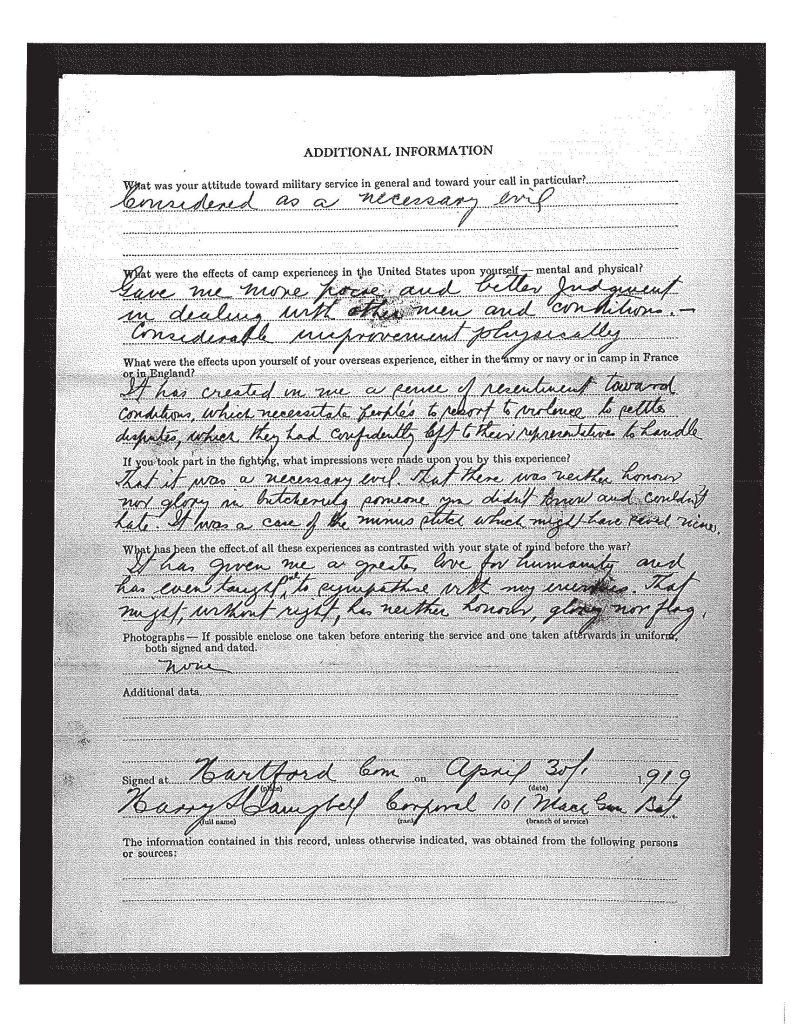 ADDITIONAL INFORMATION
What was your attitude toward military service in general and toward your call in particular?
Considered as a necessary evil
What were the effects of camp experiences in the United States upon yourself — mental and physical?
Gave me more poise and better Judgment
in dealing with other men and conditions. —
Considerable improvement physically
What were the effects upon yourself of your overseas experience, either in the army or navy or in camp in France
or in England?
It has created in me a sense of resentment toward
conditions, which necessitate people's to resort to violence to settle
disputes, which they had confidently left to their representatives to handle
If you took part in the fighting, what impressions were made upon you by this experience?
That it was a necessary evil. That there was neither honour
nor glory in butchering someone you didn't know and couldn't
hate. It was a case of the minus stitch which might have saved nine.
What has been the effect of all these experiences as contrasted with your state of mind before the war?
It has given me a greater love for humanity and
has even taught me to sympathise with my enemies. That
might, without right, has neither honour, glory nor flag.
Photographs — If possible enclose one taken before entering the service and one taken afterwards in uniform,
both signed and dated.
None
Additional data
Signed at Hartford Con on April 30/ 1919
(place) (date)
Harry S Campbell Corporal 101 Mach Gun Bat.
(full name) (rank) (branch of service)
The information contained in this record, unless otherwise indicated, was obtained from the following persons
or sources: